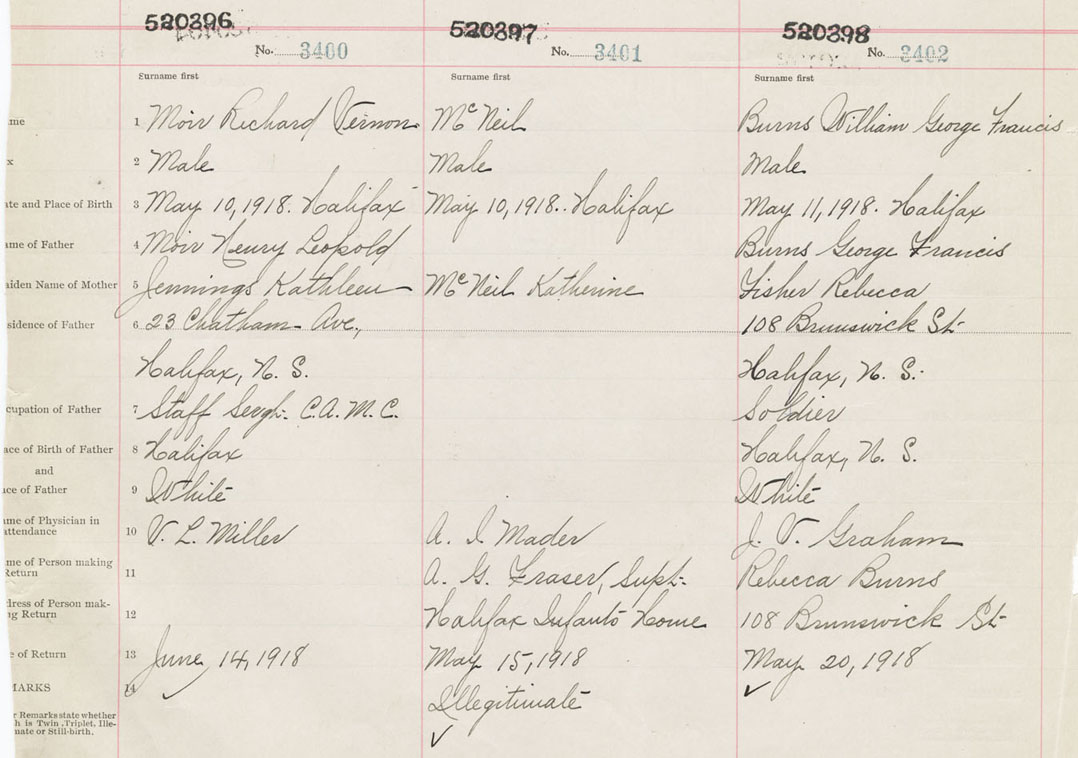 520396 520397 520398
No. 3400 No. 3401 No. 3402
Surname first Surname first Surname first
me 1 Moir Richard Vernon McNeil Burns William George Francis
x 2 Male Male Male
ate and Place of Birth 3 May 10, 1918. Halifax May 10, 1918.. Halifax May 11, 1918. Halifax
ame of Father 4 Moir Henry Leopold Burns George Francis
aiden Name of Mother 5 Jennings Kathleen McNeil Katherine Fisher Rebecca
sidence of Father 6 23 Chatham Ave., 108 Brunswick St.
Halifax, N. S. Halifax, N. S.
ccupation of Father 7 Staff Sergt. C.A.M.C. Soldier
ace of Birth of Father 8 Halifax Halifax, N. S.
and
ace of Father 9 White White
ame of Physician in
attendance 10 V. L. Miller A. I. Mader J. V. Graham
me of Person making
Return 11 A. G. Fraser, Supt. Rebecca Burns
dress of Person mak-
ng Return 12 Halifax Infants Home 108 Brunswick St.
e of Return 13 June 14, 1918 May 15, 1918 May 20, 1918
MARKS 14 Illegitimate
r Remarks state whether
h is Twin, Triplet, Ille-
mate or Still-birth.